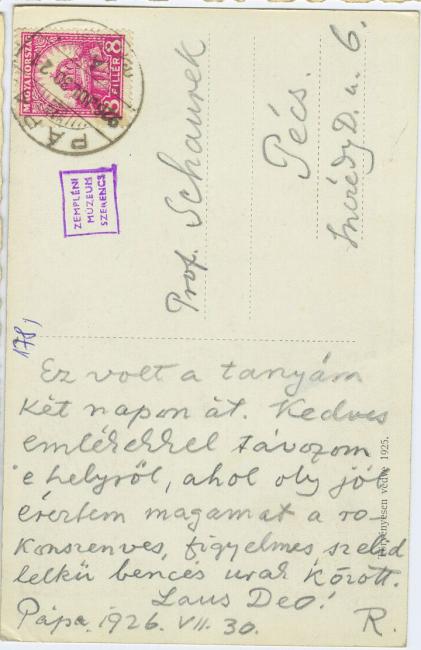 MAGYARORSZÁG
8 FILLÉR 8
PÁPA
ZEMPLÉNI
MÚZEUM
SZERENCS
Prof. Schaurek
Pécs.
D. u. 6.
178)
Ez volt a tanyám
két napon át. Kedves
emlékekkel távozom
e helyről, ahol oly jól
éreztem magamat a ro-
konszenves, figyelmes, szelid
lelkü bencés urak között.
Laus Deo!
Pápa. 1926. VII. 30. R.
Törvényesen védve 1925.